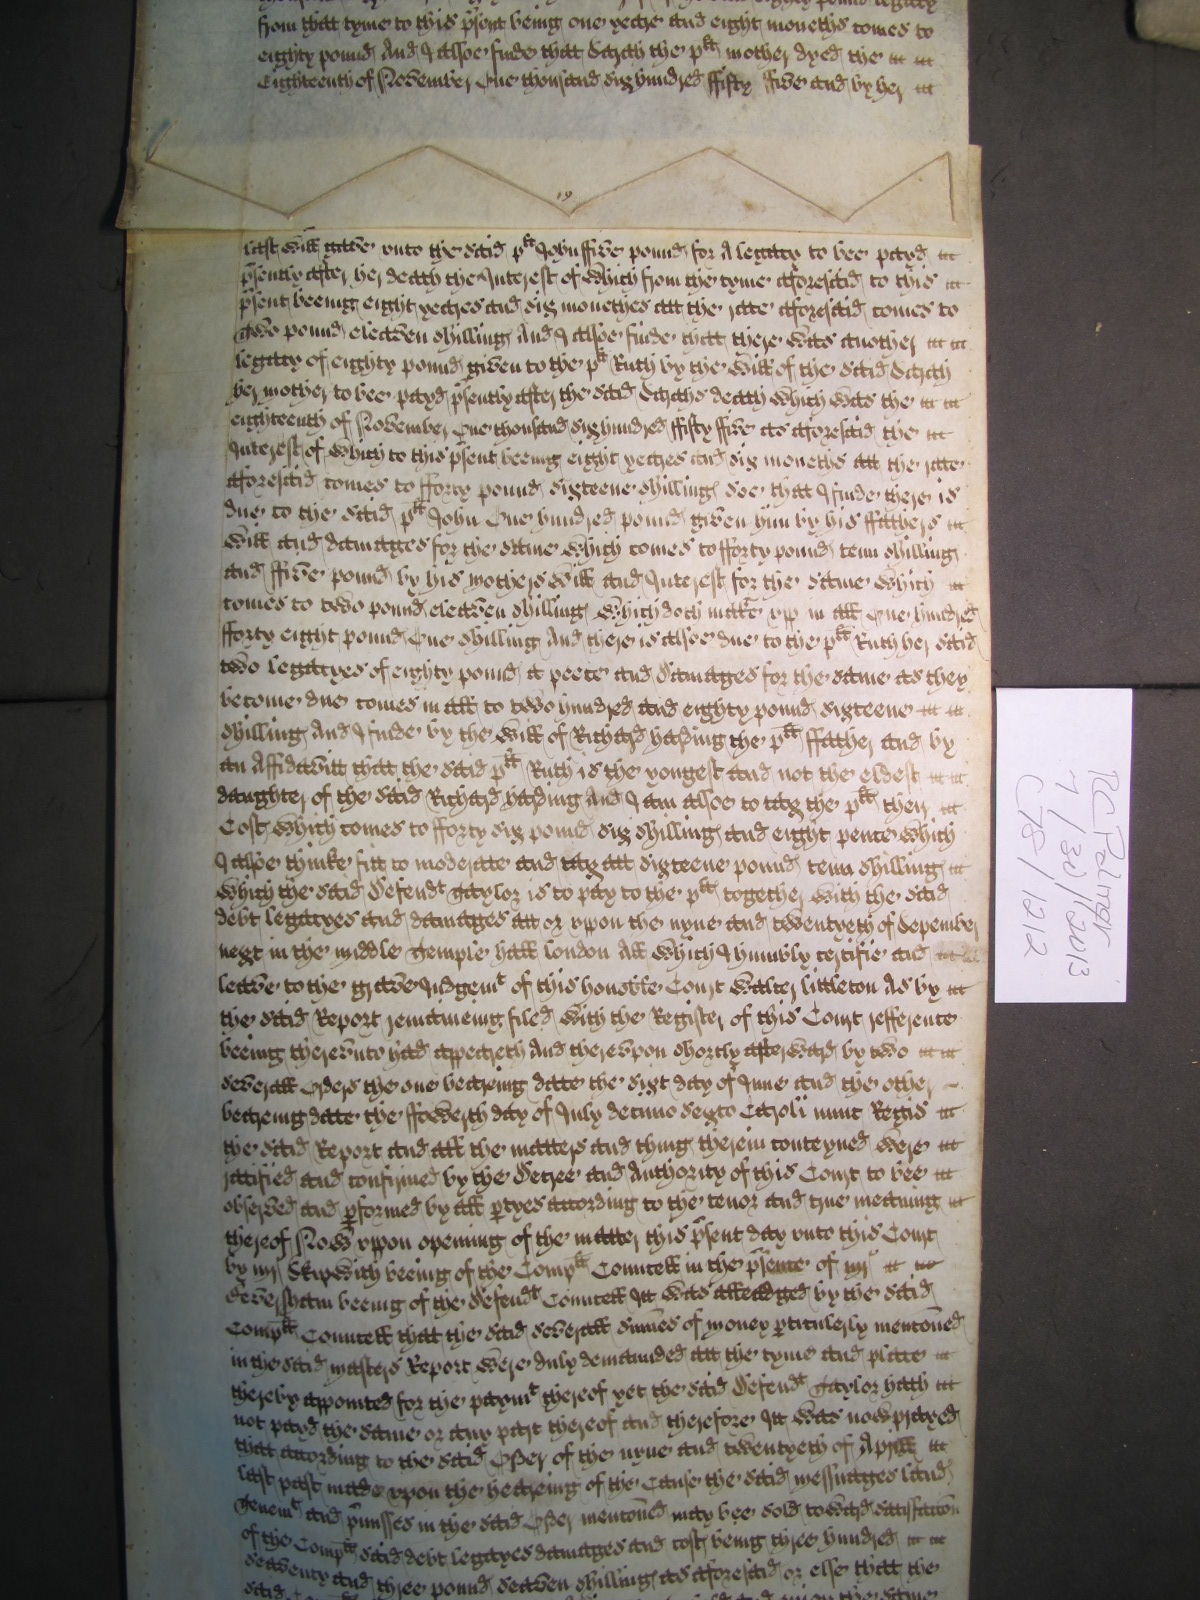 from that tyme to this p̃sent being one yeare and eight moneths comes to
eighty pound And I alsoe finde that Sarah the plt mother dyed the
Eighteenth of November One thousand six hundred ffifty ffive and by her
19
last will gave unto the said plt John ffive pound for A legacy to bee payd
p̃sently after her death the Interest of which from the tyme aforesaid to this
p̃sent beeing eight yeares and six monethes att the rate aforesaid comes to
two pound eleaven shilling And I alsoe finde that there was another
legacy of eighty pound given to the plt Ruth by the will of the said Sarah
her mother to bee payd p̃sently after the said Sarahs death which was the
eighteenth of November One thousand six hundred ffifty ffive as aforesaid the
Interest of which to this p̃sent beeing eight yeares and six moneths att the rate
aforesaid comes to fforty pound sixteene shilling soe that I finde there is
due to the said plt John One hundred pound given him by his ffathers
will and damages for the same which comes to fforty pound tenn shilling
and ffive pound by his mothers will and Interest for the same which
comes to two pound eleaven shilling which doth make upp in all One hundred
fforty eight pound One shilling And there is alsoe due to the plt Ruth her said
two legacyes of eighty pound a peece and damages for the same as they
become due comes in all to two hundred and eighty pound sixteene
shilling And I finde by the will of Richard harding the plts ffather and by
an Affidavitt that the said plt Ruth is the yongest and not the eldest
daughter of the said Richard harding And I am alsoe to tax the plts their
Cost which comes to fforty six pound six shilling and eight pence which
I alsoe thinke fitt to moderate and tax att sixteene pound tenn shilling
which the said Defendt Taylor is to pay to the plts together with the said
debt legacyes and damages att or uppon the nyne and twentyeth of September
next in the middle Temple hall london All which I humbly certifie and
leave to the grave Judgemt of this honoble Court Walter littleton As by
the said Report remaineing filed with the Register of this Court refference
beeing thereunto had appeareth And thereupon shortly afterward by two
severall Orders the one beareing date the sixt day of June and the other
beareing date the ffowerth day of July decimo sexto Caroli nunc Regis
the said Report and all the matters and thing therein conteyned were
ratified and confirmed by the Decree and Authority of this Court to bee
observed and pformed by all ptyes according to the tenor and true meaning
thereof Now uppon opening of the matter this p̃sent day unto this Court
by mr Skipwith beeing of the Complts Councell in the p̃sence of mr
beeing of the Defendts Councell It was alleadged by the said
Complts Councell that the said severall sumes of money pticulerly mentoned
in the said masters Report were duly demanded att the tyme and place
thereby appointed for the paymt thereof yet the said Defendt Taylor hath
not payd the same or any part thereof and therefore It was now prayed
that according to the said Order of the nyne and twentyeth of Aprill
last past made upon the heareing of the Cause the said messuages land
Tenemt and p̃misses in the said Order mentoned may bee sold toward satisfaction
of the Complts said debt legacyes damages and cost being three hundred
seaventy and three pound seaven shilling as aforesaid or else that the
said
RC Palmer
7/30/2013
C78/1212